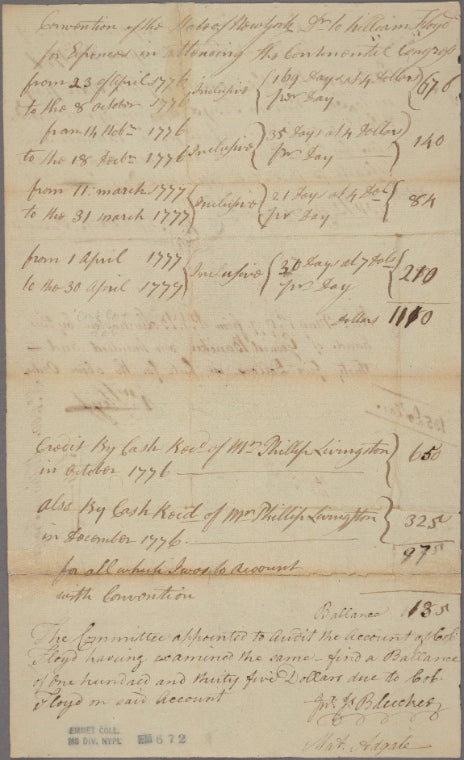 Convention of the State of New York Dr to William Floyd
for Expences in attending the Continental Congress
from 23 of April 1776
to the 8 October 1776 Inclusive 169 Days at 4 Dollars per Day 676
from 14 Nobr 1776
to the 18 Decbr 1776 Inclusive 35 Days at 4 Dollars per Day 140
from 11 march 1777
to the 31 march 1777 Inclusive 21 Days at 4 Dol per Day 84
from 1 April 1777
to the 30 April 1777 Inclusive 30 Days at 7 Dols per Day 210
Dollars 1110
Credit By Cash Recd of Mr Phillip Livingston
in October 1776 650
also By Cash Recid of Mr Phillip Livingston
in December 1776 325
975
for all which I was to Account
with Convention
Ballance 135
The Committee appointed to Audit the Account of Col
Floyd having examined the same find a Ballance
of One hundred and thirty five Dollars due to Col
Floyd on said Account
EMMET COLL.
MS DIV. NYPL EM 672